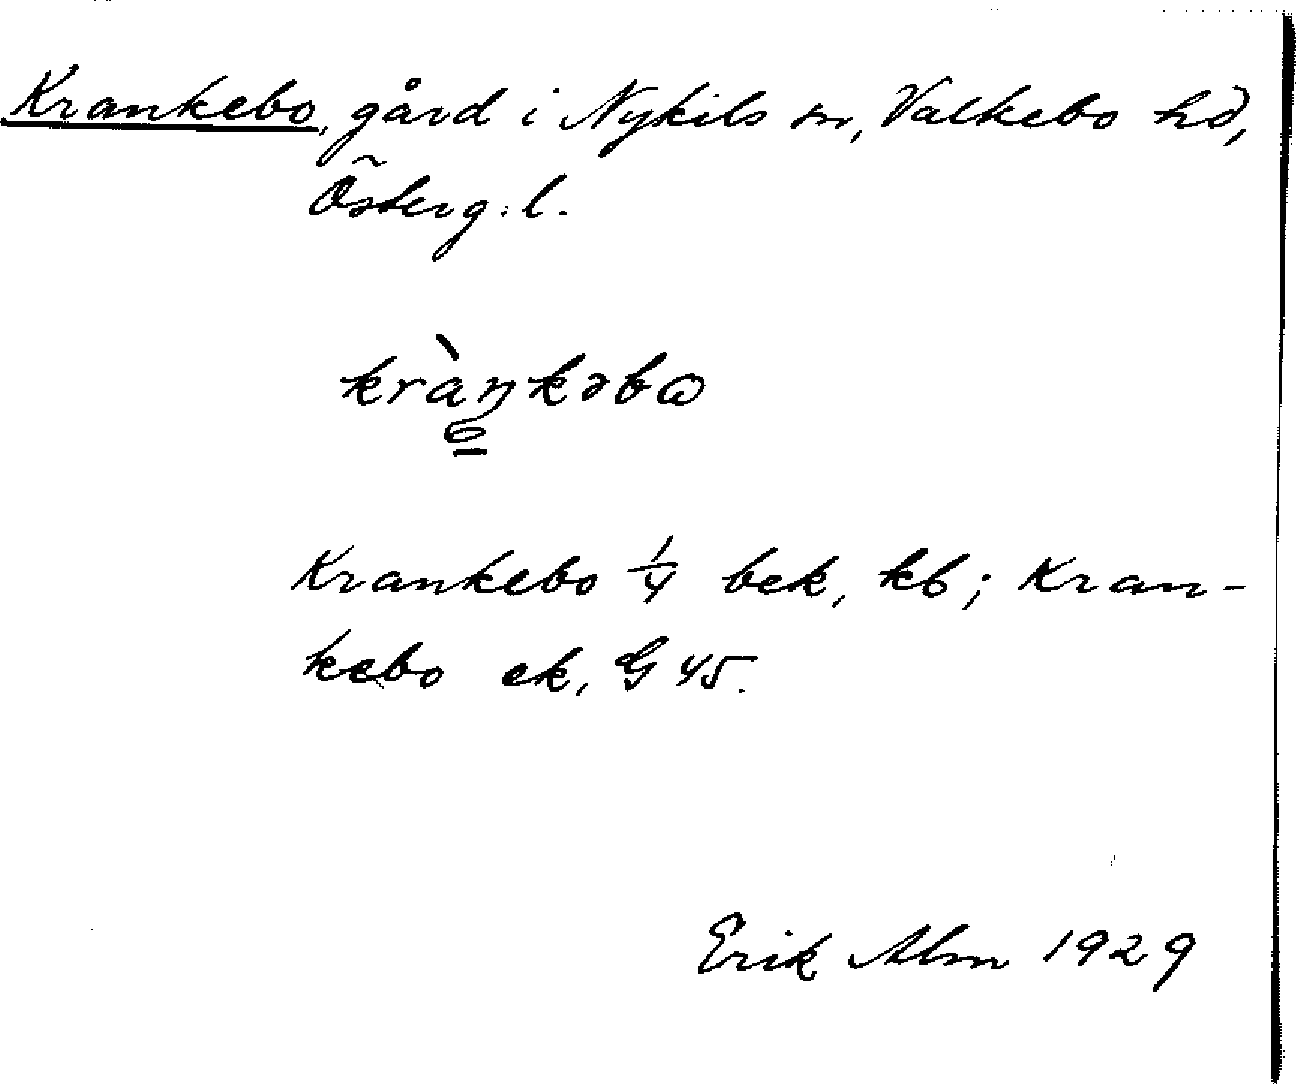 Krankebo, gård i Nykils sn, Valkebo hd,
Österg. l.
kràŋkəbω
Krankebo 1/4 bek, kb; Kran-
kebo ek, G 45.
Erik Alm 1929